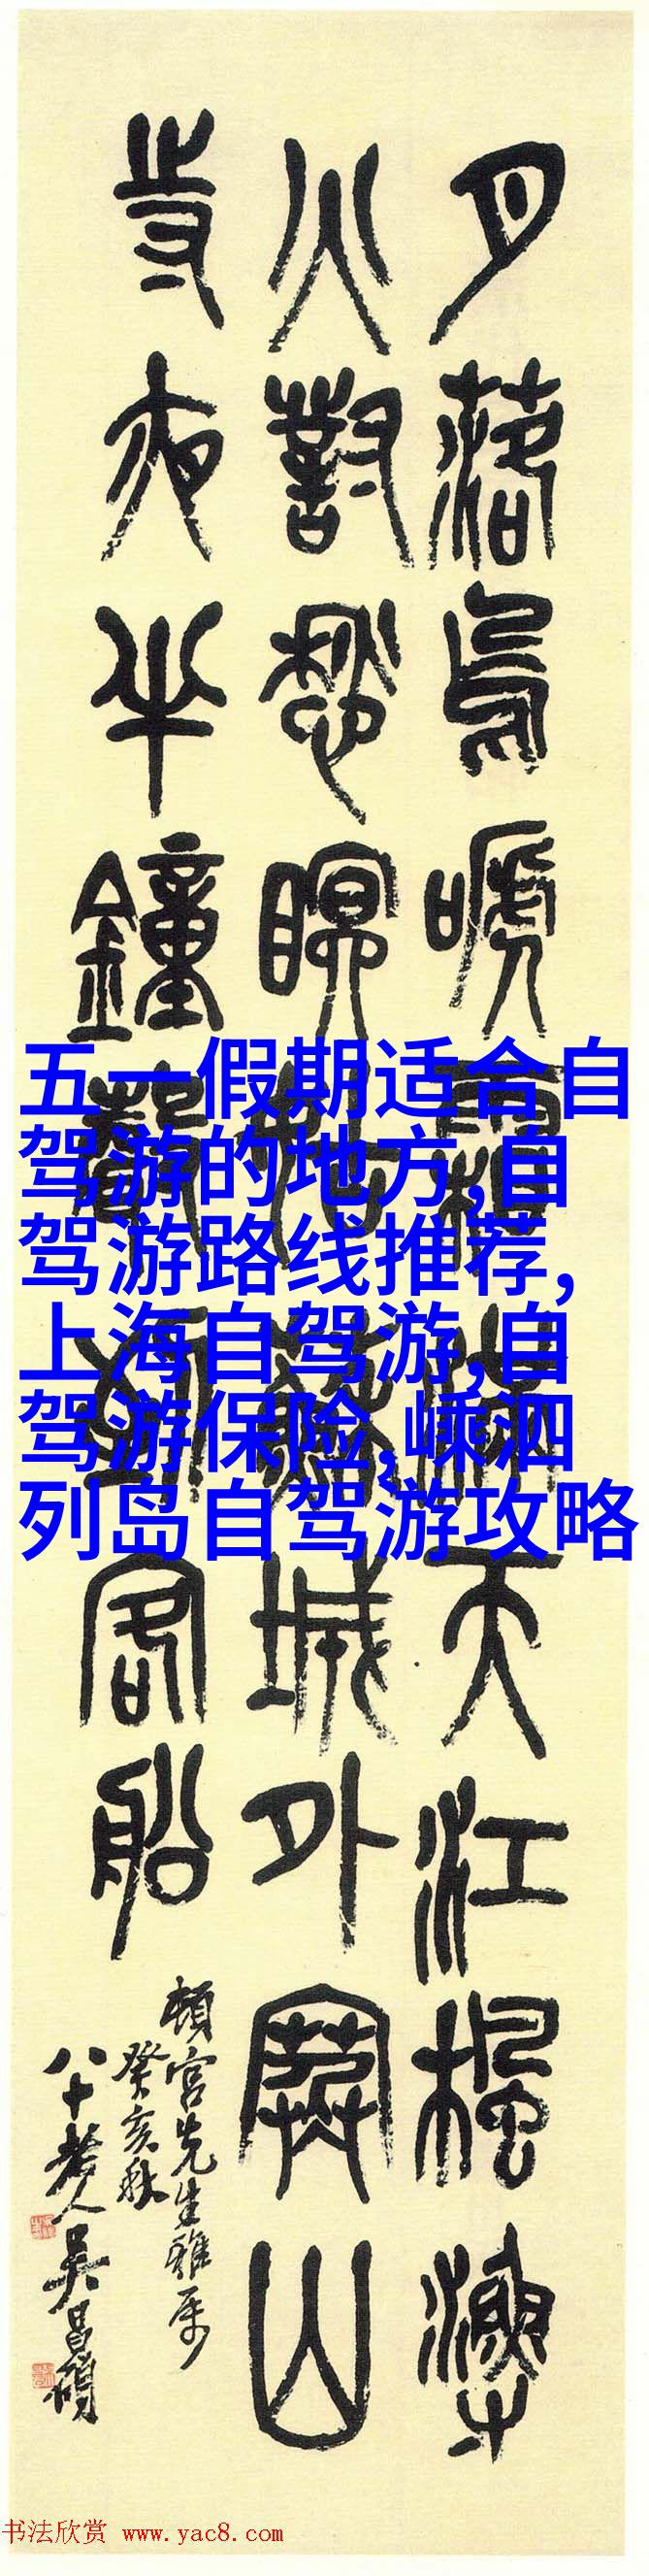 五一假期适合自
驾游的地方,自
驾游路线推荐,
上海自驾游,自
驾游保险,嵊泗
列岛自驾游攻略
月落烏嗁霜滿天江楓漁
火對愁瞑姑蘇城外寒山
寺夜半鐘聲到客船
頓宮先生雅屬
癸亥秋
八十老人吳昌碩
书法欣赏 www.yac8.com